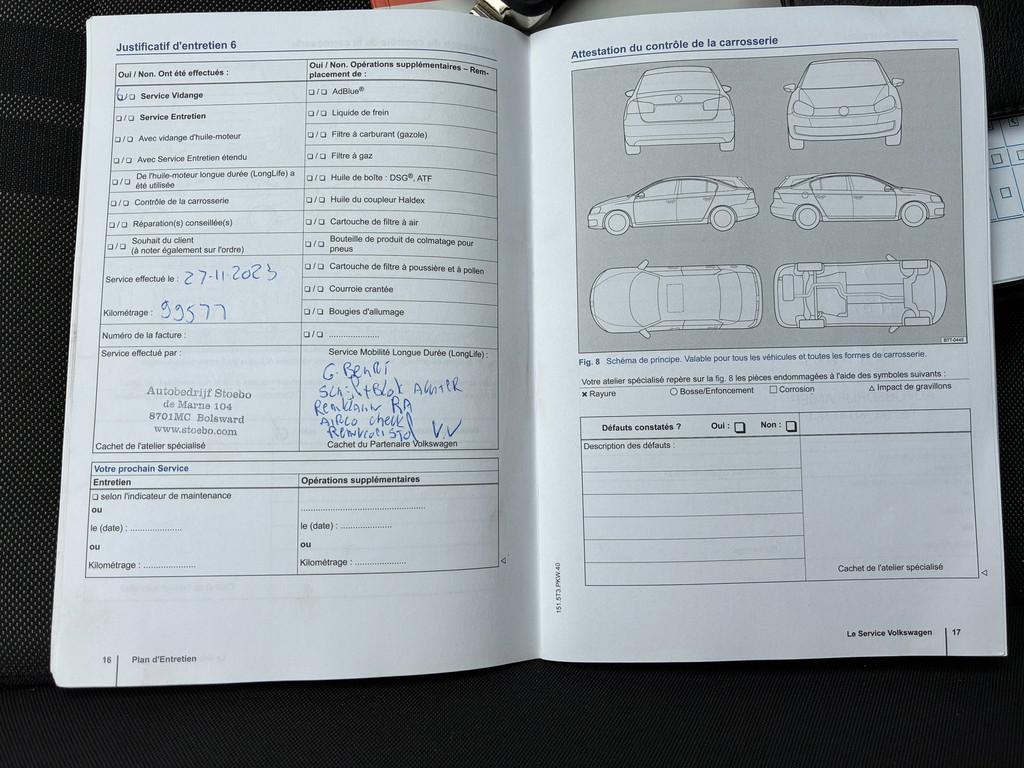 Justificatif d'entretien 6
Oui / Non. Ont été effectués :
Service Vidange
❏ / ❏ Service Entretien
❏ / ❏ Avec vidange d'huile-moteur
❏ / ❏ Avec Service Entretien étendu
❏ / ❏ De l'huile-moteur longue durée (LongLife) a
été utilisée
❏ / ❏ Contrôle de la carrosserie
❏ / ❏ Réparation(s) conseillée(s)
❏ / ❏ Souhait du client
(à noter également sur l'ordre)
Service effectué le : 27-11-2023
Kilométrage : 99577
Numéro de la facture :
Service effectué par :
Autobedrijf Stoebo
de Marne 104
8701MC Bolsward
www.stoebo.com
Cachet de l'atelier spécialisé
Oui / Non. Opérations supplémentaires – Rem-
placement de :
❏ / ❏ AdBlue®
❏ / ❏ Liquide de frein
❏ / ❏ Filtre à carburant (gazole)
❏ / ❏ Filtre à gaz
❏ / ❏ Huile de boîte : DSG®, ATF
❏ / ❏ Huile du coupleur Haldex
❏ / ❏ Cartouche de filtre à air
❏ / ❏ Bouteille de produit de colmatage pour
pneus
❏ / ❏ Cartouche de filtre à poussière et à pollen
❏ / ❏ Courroie crantée
❏ / ❏ Bougies d'allumage
❏ / ❏ .....................
Service Mobilité Longue Durée (LongLife) :
G. Beurt
Schijf + Blok Achter
Remklauw RA
Airco check
Remvloeistof V.V
Cachet du Partenaire Volkswagen
Votre prochain Service
Entretien
❏ selon l'indicateur de maintenance
ou
le (date) : .....................
ou
Kilométrage : .....................
Opérations supplémentaires
..................................................
le (date) : .....................
ou
Kilométrage : .....................
16 Plan d'Entretien
Attestation du contrôle de la carrosserie
B7T-0446
Fig. 8 Schéma de principe. Valable pour tous les véhicules et toutes les formes de carrosserie.
Votre atelier spécialisé repère sur la fig. 8 les pièces endommagées à l'aide des symboles suivants :
✖ Rayure ○ Bosse/Enfoncement □ Corrosion △ Impact de gravillons
Défauts constatés ? Oui : ❏ Non : ❏
Description des défauts :
Cachet de l'atelier spécialisé
151.5T3.PKW.40
Le Service Volkswagen 17